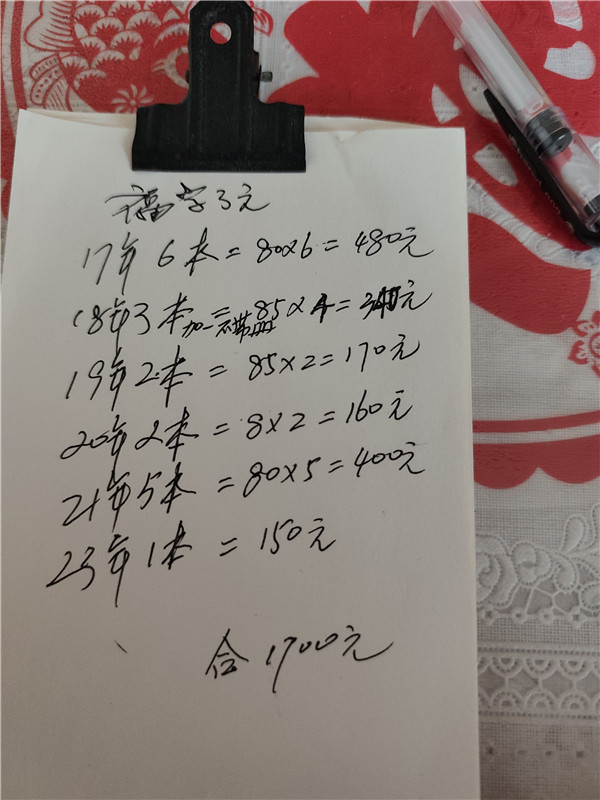 福字3元
17年6本=80×6=480元
18年3本加一不带册=85×4=340元
19年2本=85×2=170元
20年2本=8×2=160元
21年5本=80×5=400元
23年1本=150元
合1700元